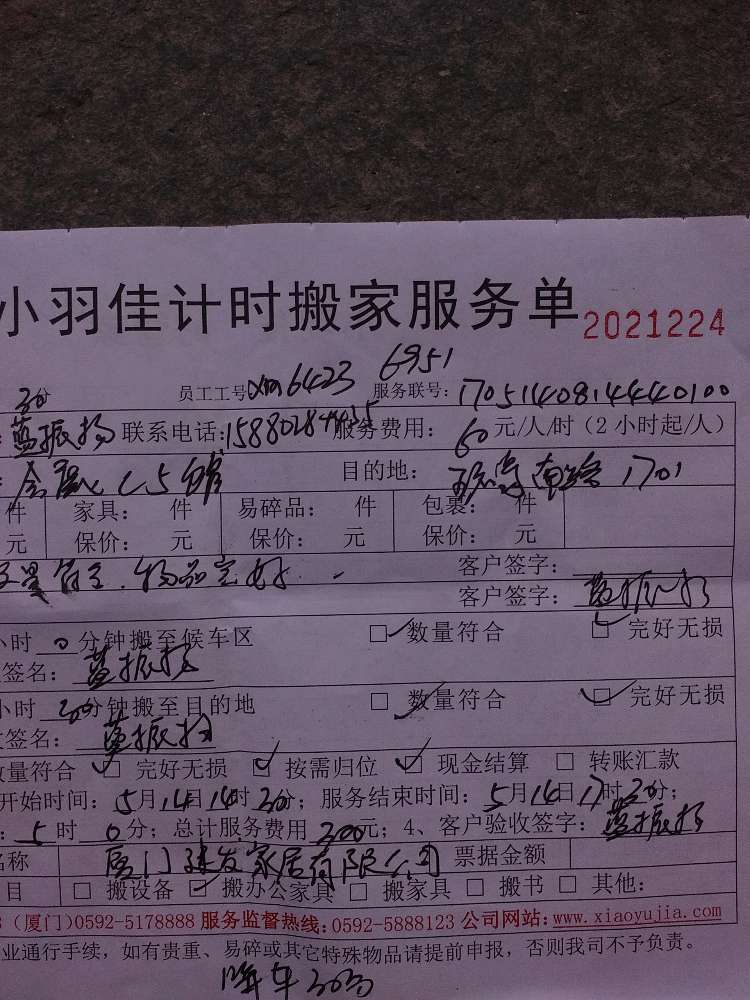 小羽佳计时搬家服务单 2021224
30分 员工工号 xm6423 6951 服务联号: 170514081444 0100
蓝振扬 联系电话: 服务费用: 60 元/人/时（2小时起/人）
目的地: 1701
件 家具: 件 易碎品: 件 包裹: 件
元 保价: 元 保价: 元 保价: 元
物品完好. 客户签字:
客户签字: 蓝振扬
小时 0 分钟搬至候车区 数量符合 完好无损
签名: 蓝振扬
小时 30 分钟搬至目的地 数量符合 完好无损
签名: 蓝振扬
数量符合 完好无损 按需归位 现金结算 转账汇款
开始时间: 5月14日14时30分; 服务结束时间: 5月14日17时30分;
: 5 时 0 分; 总计服务费用 300 元; 4、客户验收签字: 蓝振扬
名称 厦门建发家居有限公司 票据金额
目 搬设备 搬办公家具 搬家具 搬书 其他:
（厦门）0592-5178888 服务监督热线: 0592-5888123 公司网站: www.xiaoyujia.com
业通行手续, 如有贵重、易碎或其它特殊物品请提前申报, 否则我司不予负责。